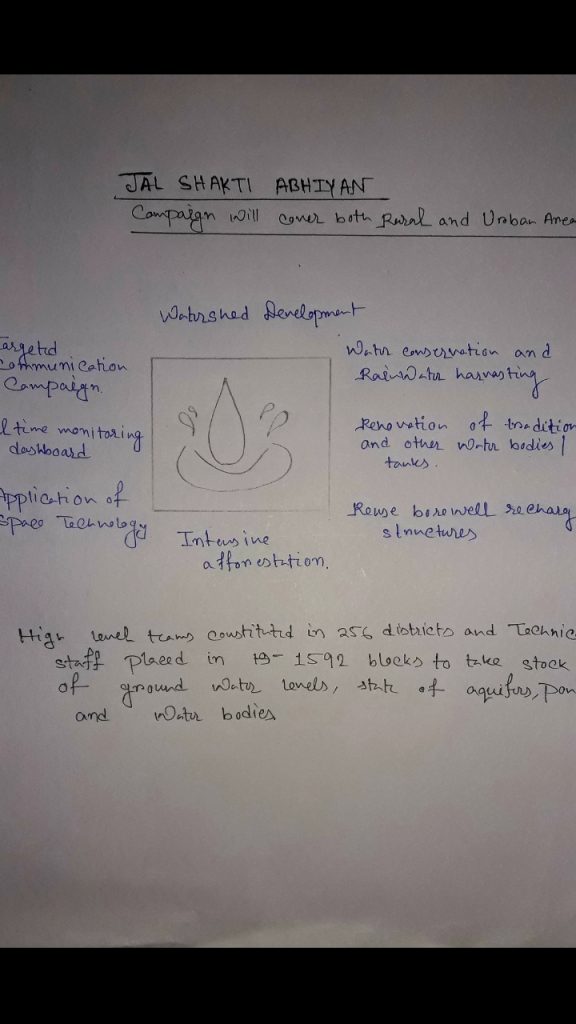 JAL SHAKTI ABHIYAN
Campaign will cover both Rural and Urban Area
Watershed Development
argeted
ommunication
Campaign.
l time monitoring
dashboard
Application of
Space Technology
Water conservation and
RainWater harvesting
Renovation of tradition
and other water bodies/
tanks.
Reuse borewell recharg
structures
Intensive
afforestation.
High level teams constituted in 256 districts and Technic
staff placed in 1592 blocks to take stock
of ground water levels, state of aquifers, pon
and water bodies